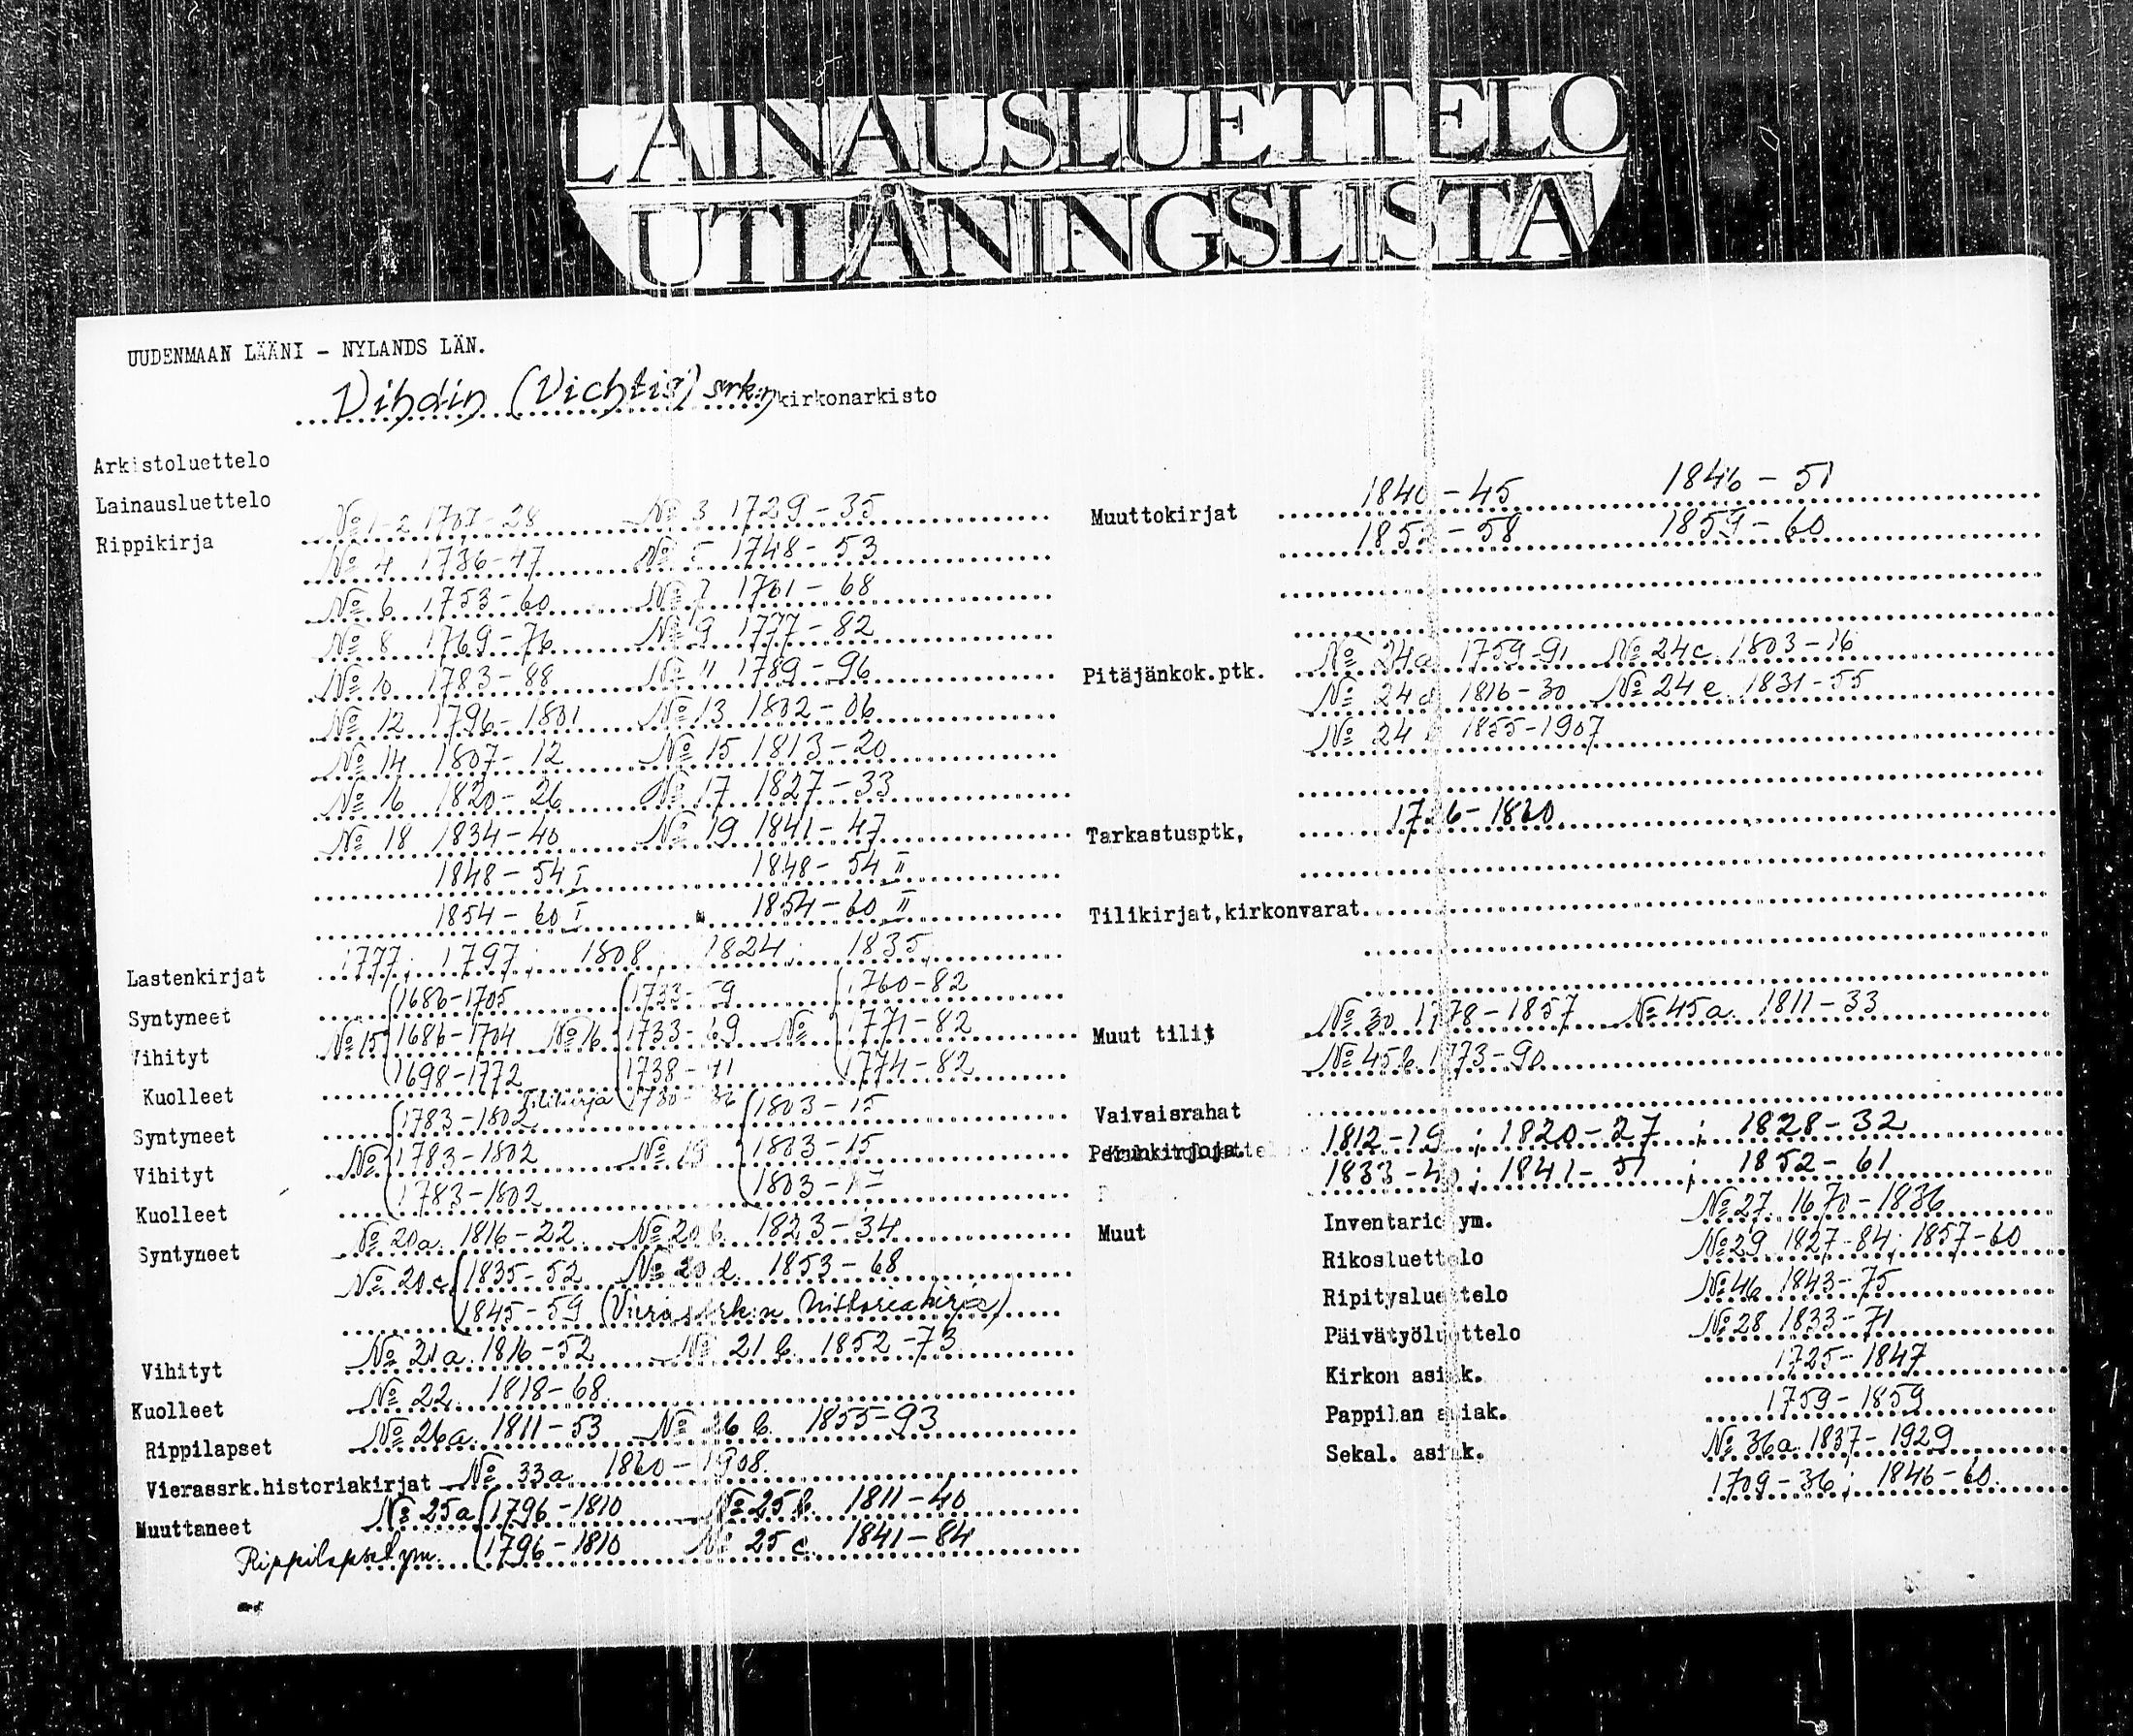 LAINAUSLUETTELO
UTLÅNINGSLISTA
UUDENMAAN LÄÄNI - NYLANDS LÄN.
Vihdin (Vichtis) srk:n kirkonarkisto
Arkistoluettelo
Lainausluettelo
Rippikirja № 1-2 1707-28 № 3 1729-35
№ 4 1736-47 № 5 1748-53
№ 6 1753-60 № 7 1761-68
№ 8 1769-76 № 9 1777-82
№ 10 1783-88 № 11 1789-96
№ 12 1796-1801 № 13 1802-06
№ 14 1807-12 № 15 1813-20
№ 16 1820-26 № 17 1827-33
№ 18 1834-40 № 19 1841-47
1848-54 I 1848-54 II
1854-60 I 1854-60 II
Lastenkirjat 1777; 1797; 1808 1824; 1835
Syntyneet 1686-1705 1733-59 1760-82
Vihityt № 15 1686-1704 № 16 1733-69 № 1771-82
Kuolleet 1698-1772 1738-71 1774-82
Tilikirja 1730-36
Syntyneet 1783-1802 1803-15
Vihityt № 1783-1802 № 19 1803-15
Kuolleet 1783-1802 1803-
Syntyneet № 20a. 1816-22. № 20b. 1823-34
№ 20c. 1835-52 № 20d. 1853-68
1845-59 (Vierassrk:n historiakirja)
Vihityt № 21a. 1816-52 № 21b. 1852-73
Kuolleet № 22. 1818-68.
Rippilapset № 26a. 1811-53 № 26b. 1855-93
Vierassrk.historiakirjat № 33a 1860-1908
Muuttaneet № 25a 1796-1810 № 25b. 1811-40
Rippilapset ym. 1796-1810 № 25c. 1841-84
Muuttokirjat 1840-45 1846-51
1852-58 1859-60
Pitäjänkok.ptk. № 24a 1759-91 № 24c. 1803-16
№ 24d 1816-30 № 24e. 1831-55
№ 24 1855-1907
Tarkastusptk,
Tilikirjat,kirkonvarat
Muut tilit № 30 1778-1857 № 45a. 1811-33
№ 45b. 1773-90
Vaivaisrahat
Perunkirjoja. 1812-19; 1820-27; 1828-32
1833-40; 1841-51; 1852-61
Muut Inventario ym. № 27. 1670-1836
Rikosluettelo № 29 1827-84; 1857-60
Ripitysluettelo № 46 1843-75
Päivätyöluettelo № 28 1833-71
Kirkon asiak. 1725-1847
Pappilan asiak. 1759-1859
Sekal. asiak. № 36a. 1837-1929
1709-36; 1846-60.